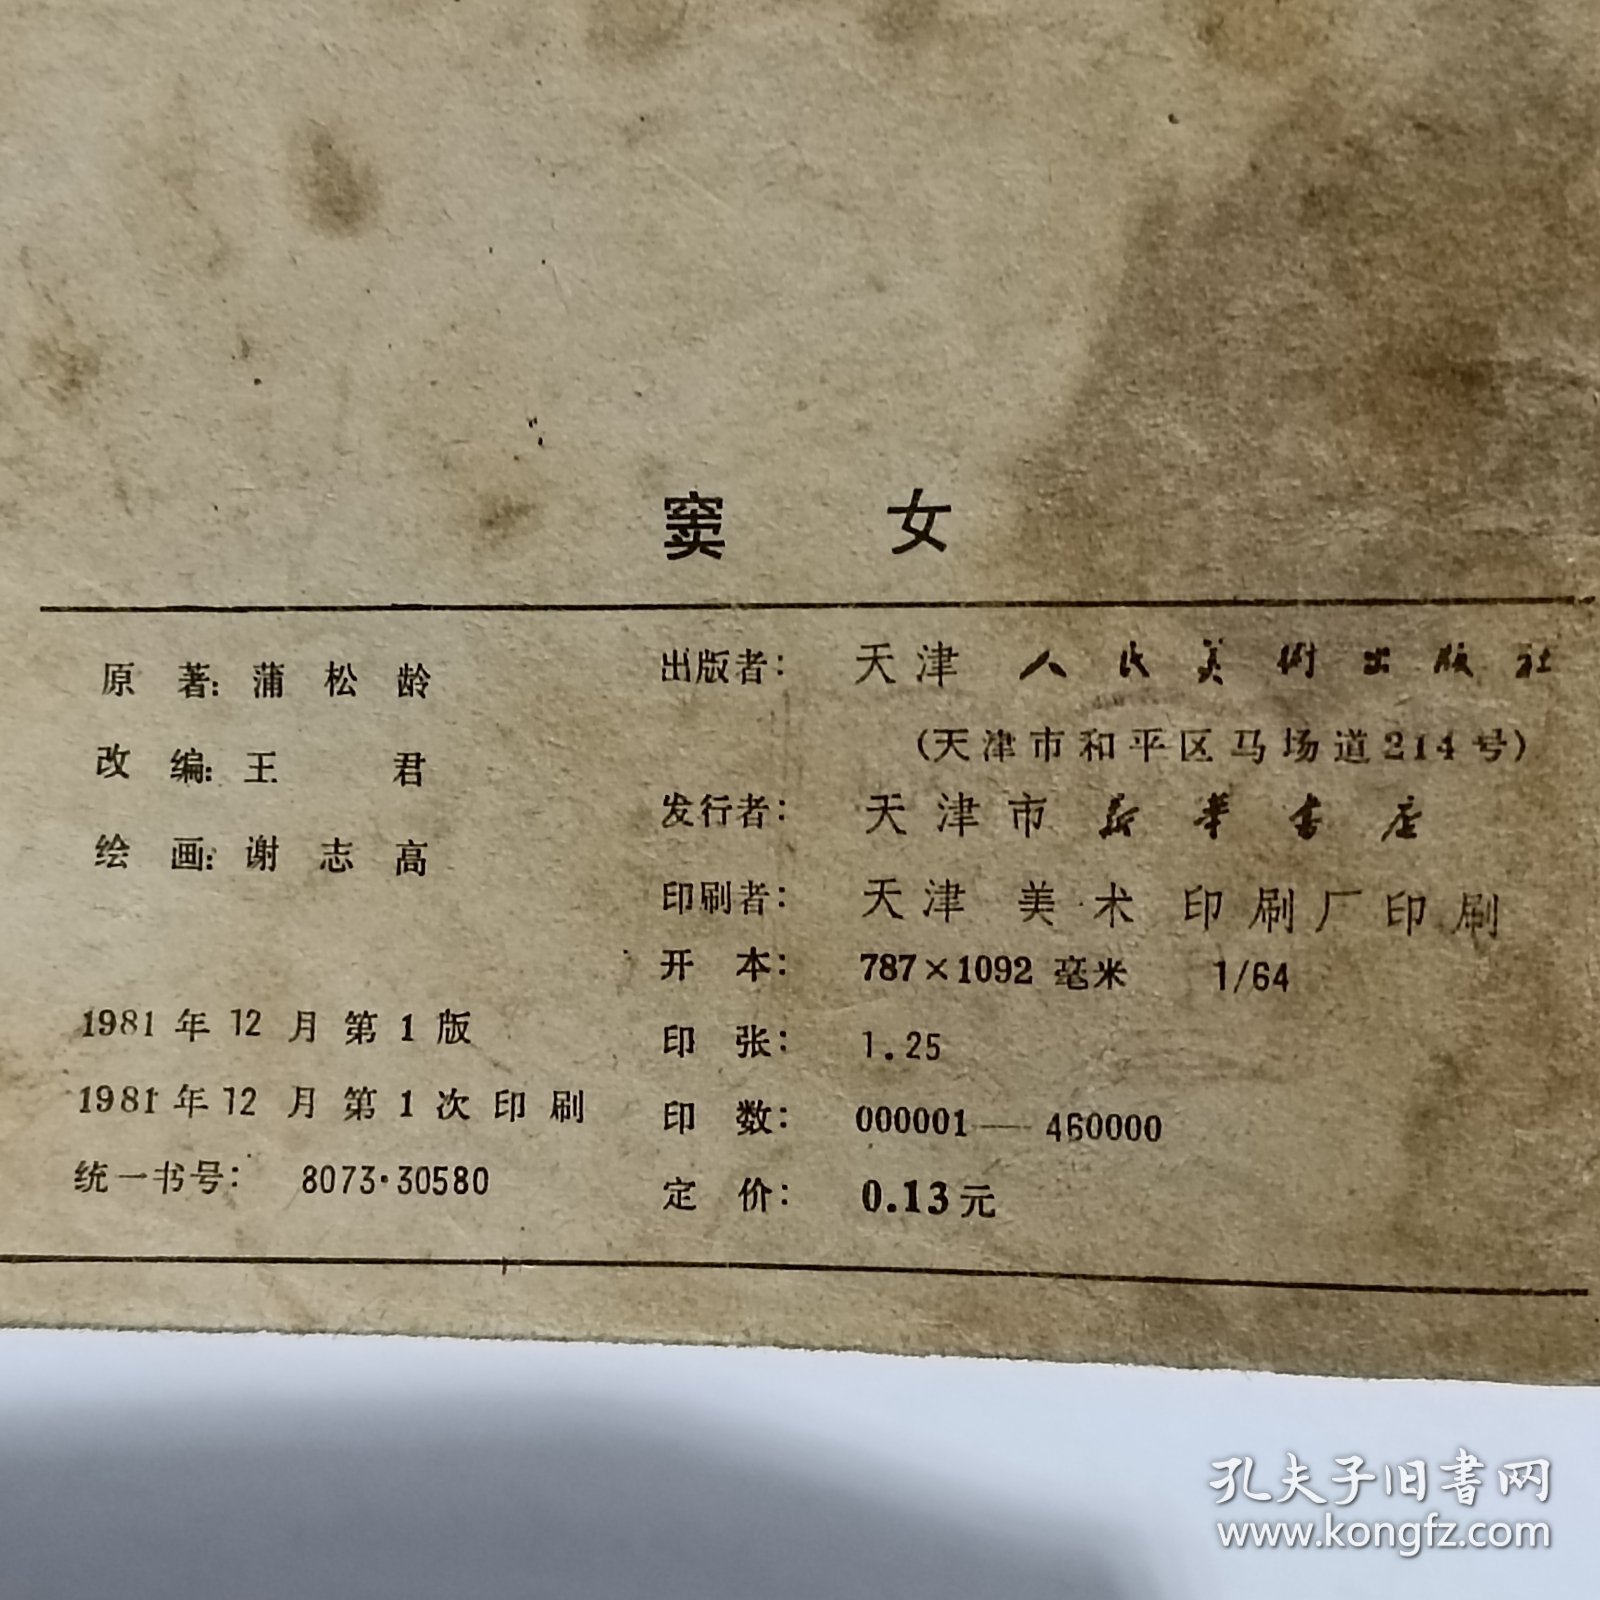 窦 女
原 著：蒲 松 龄
改 编：王 君
绘 画：谢 志 高
1981年12月第1版
1981年12月第1次印刷
统一书号： 8073·30580
出版者： 天津人民美術出版社
（天津市和平区马场道214号）
发行者： 天津市新華書店
印刷者： 天津美术印刷厂印刷
开 本： 787×1092 毫米 1/64
印 张： 1.25
印 数： 000001—460000
定 价： 0.13元
孔夫子旧书网
www.kongfz.com